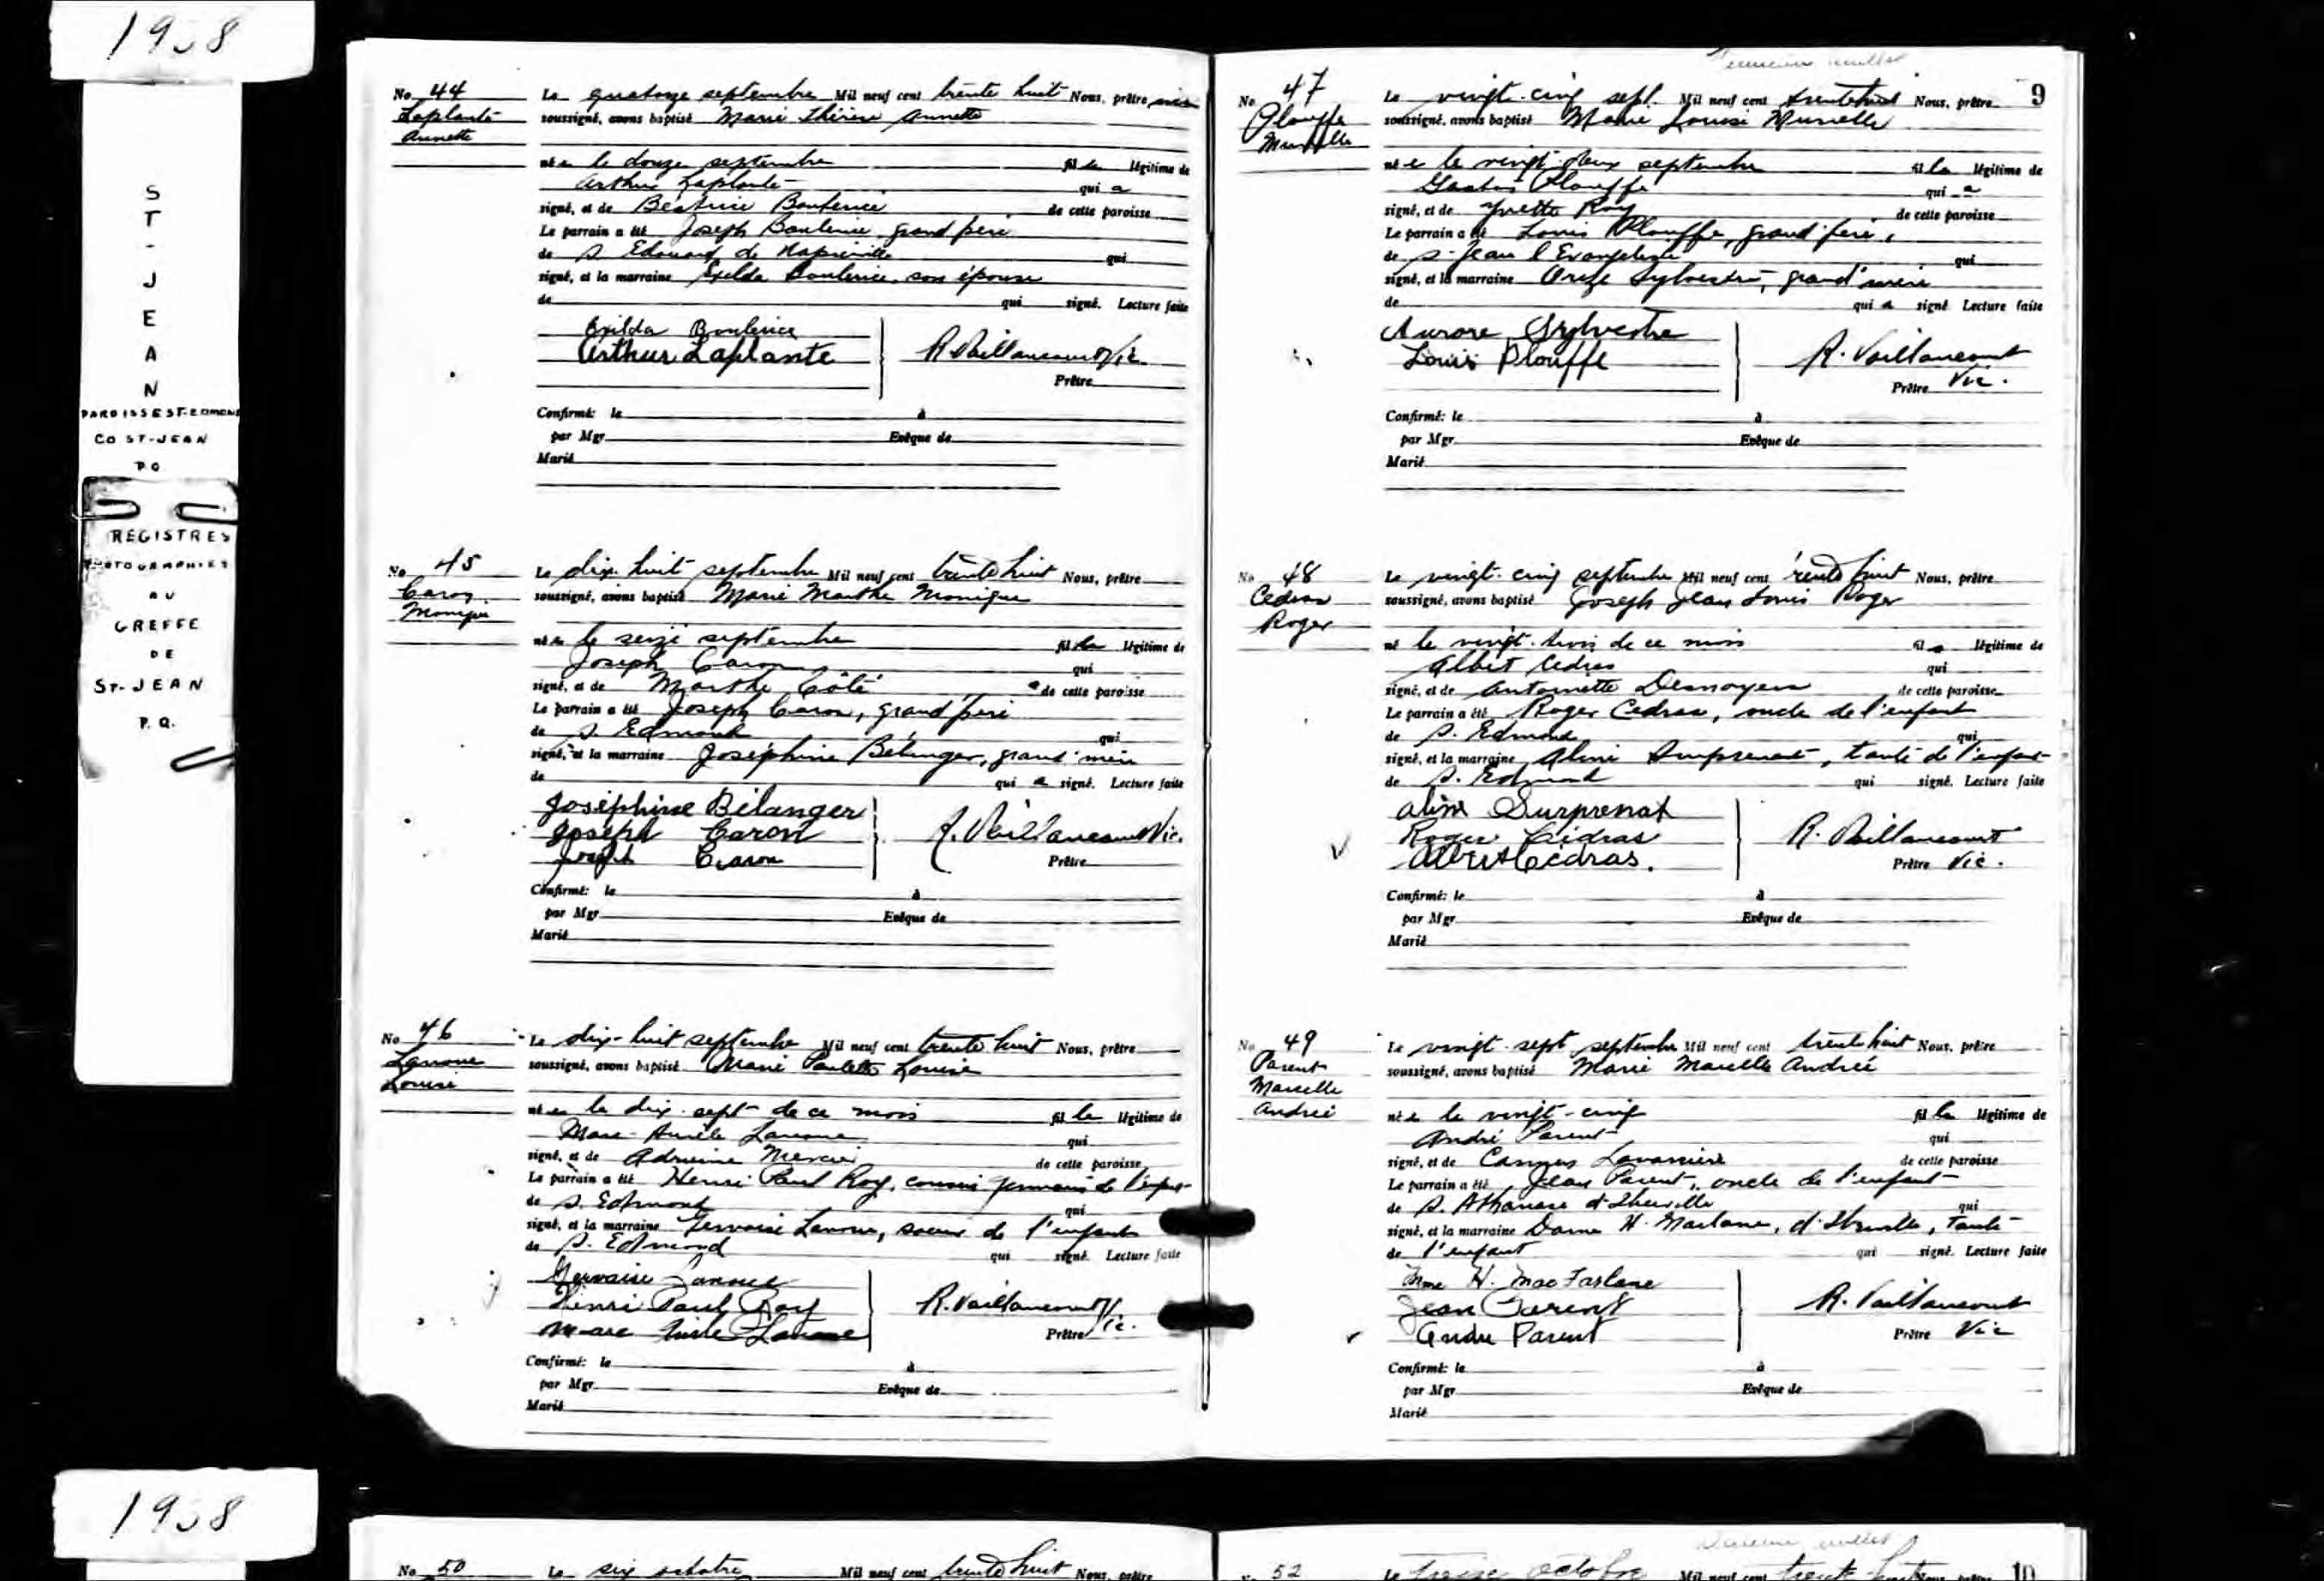 1938
ST-JEAN
PAROISSE ST-EDMOND
CO ST-JEAN
P Q
REGISTRES
PHOTOGRAPHIES
AU
GREFFE
DE
ST-JEAN
P.Q.
No 44
Laplante
Annette
Le quatorze septembre Mil neuf cent trente huit Nous, prêtre
soussigné, avons baptisé Marie Thérèse Annette
née le douze septembre fille légitime de
Arthur Laplante qui a
signé, et de Béatrice Boulerice de cette paroisse
Le parrain a été Joseph Boulerice, grand père
de S. Edouard de Napierville qui
signé, et la marraine Exilda Boulerice, son épouse
de qui signé. Lecture faite
Exilda Boulerice
Arthur Laplante
R. Vaillancourt Vic.
Prêtre
Confirmé: le à
par Mgr Evêque de
Marié
No 45
Caron
Monique
Le dix-huit septembre Mil neuf cent trente huit Nous, prêtre
soussigné, avons baptisé Marie Marthe Monique
née le seize septembre fille légitime de
Joseph Caron qui
signé, et de Marthe Côté de cette paroisse
Le parrain a été Joseph Caron, grand père
de S. Edmond qui
signé, et la marraine Joséphine Bélanger, grand'mère
de qui a signé. Lecture faite
Joséphine Bélanger
Joseph Caron
Joseph Caron
R. Vaillancourt Vic.
Prêtre
Confirmé: le à
par Mgr Evêque de
Marié
No 46
Lanoue
Louise
Le dix-huit septembre Mil neuf cent trente huit Nous, prêtre
soussigné, avons baptisé Marie Paulette Louise
née le dix-sept de ce mois fille légitime de
Marc-Aurèle Lanoue qui
signé, et de Adrienne Mercier de cette paroisse
Le parrain a été Henri Paul Roy, cousin germain de l'enfant
de S. Edmond qui
signé, et la marraine Gervaise Lanoue, soeur de l'enfant
de S. Edmond qui signé. Lecture faite
Gervaise Lanoue
Henri Paul Roy
Marc Lanoue
R. Vaillancourt
Prêtre Vic.
Confirmé: le à
par Mgr Evêque de
Marié
9
No 47
Plouffe
Murielle
Le vingt-cinq sept. Mil neuf cent trente huit Nous, prêtre
soussigné, avons baptisé Marie Louise Murielle
née le vingt-deux septembre fille légitime de
Gaston Plouffe qui a
signé, et de Yvette Roy de cette paroisse
Le parrain a été Louis Plouffe, grand'père,
de S-Jean l'Evangéliste qui
signé, et la marraine Sylvestre, grand'mère
de qui a signé. Lecture faite
Aurore Sylvestre
Louis Plouffe
R. Vaillancourt
Prêtre Vic.
Confirmé: le à
par Mgr Evêque de
Marié
No 48
Cedras
Roger
Le vingt-cinq septembre Mil neuf cent trente huit Nous, prêtre
soussigné, avons baptisé Joseph Jean Louis Roger
né le vingt-trois de ce mois fils légitime de
Albert Cedras qui
signé, et de Antoinette Desnoyers de cette paroisse
Le parrain a été Roger Cedras, oncle de l'enfant
de S. Edmond qui
signé, et la marraine Aline Surprenant, tante de l'enfant
de S. Edmond qui signé. Lecture faite
Aline Surprenat
Roger Cédras
Albert Cédras.
R. Vaillancourt
Prêtre Vic.
Confirmé: le à
par Mgr Evêque de
Marié
No 49
Parent
Marcelle
Andrée
Le vingt-sept septembre Mil neuf cent trente huit Nous, prêtre
soussigné, avons baptisé Marie Marcelle Andrée
née le vingt-cinq fille légitime de
André Parent qui
signé, et de Lavassière de cette paroisse
Le parrain a été Jean Parent, oncle de l'enfant
de S. Athanase d'Iberville qui
signé, et la marraine Dame H. d'Iberville, tante
de l'enfant qui signé. Lecture faite
Mme H. MacFarlane
Jean Parent
André Parent
R. Vaillancourt
Prêtre Vic
Confirmé: le à
par Mgr Evêque de
Marié
1938
No 50 Le six octobre Mil neuf cent trente huit Nous, prêtre
52 Le treize octobre Mil neuf cent trente-huit Nous, prêtre 10